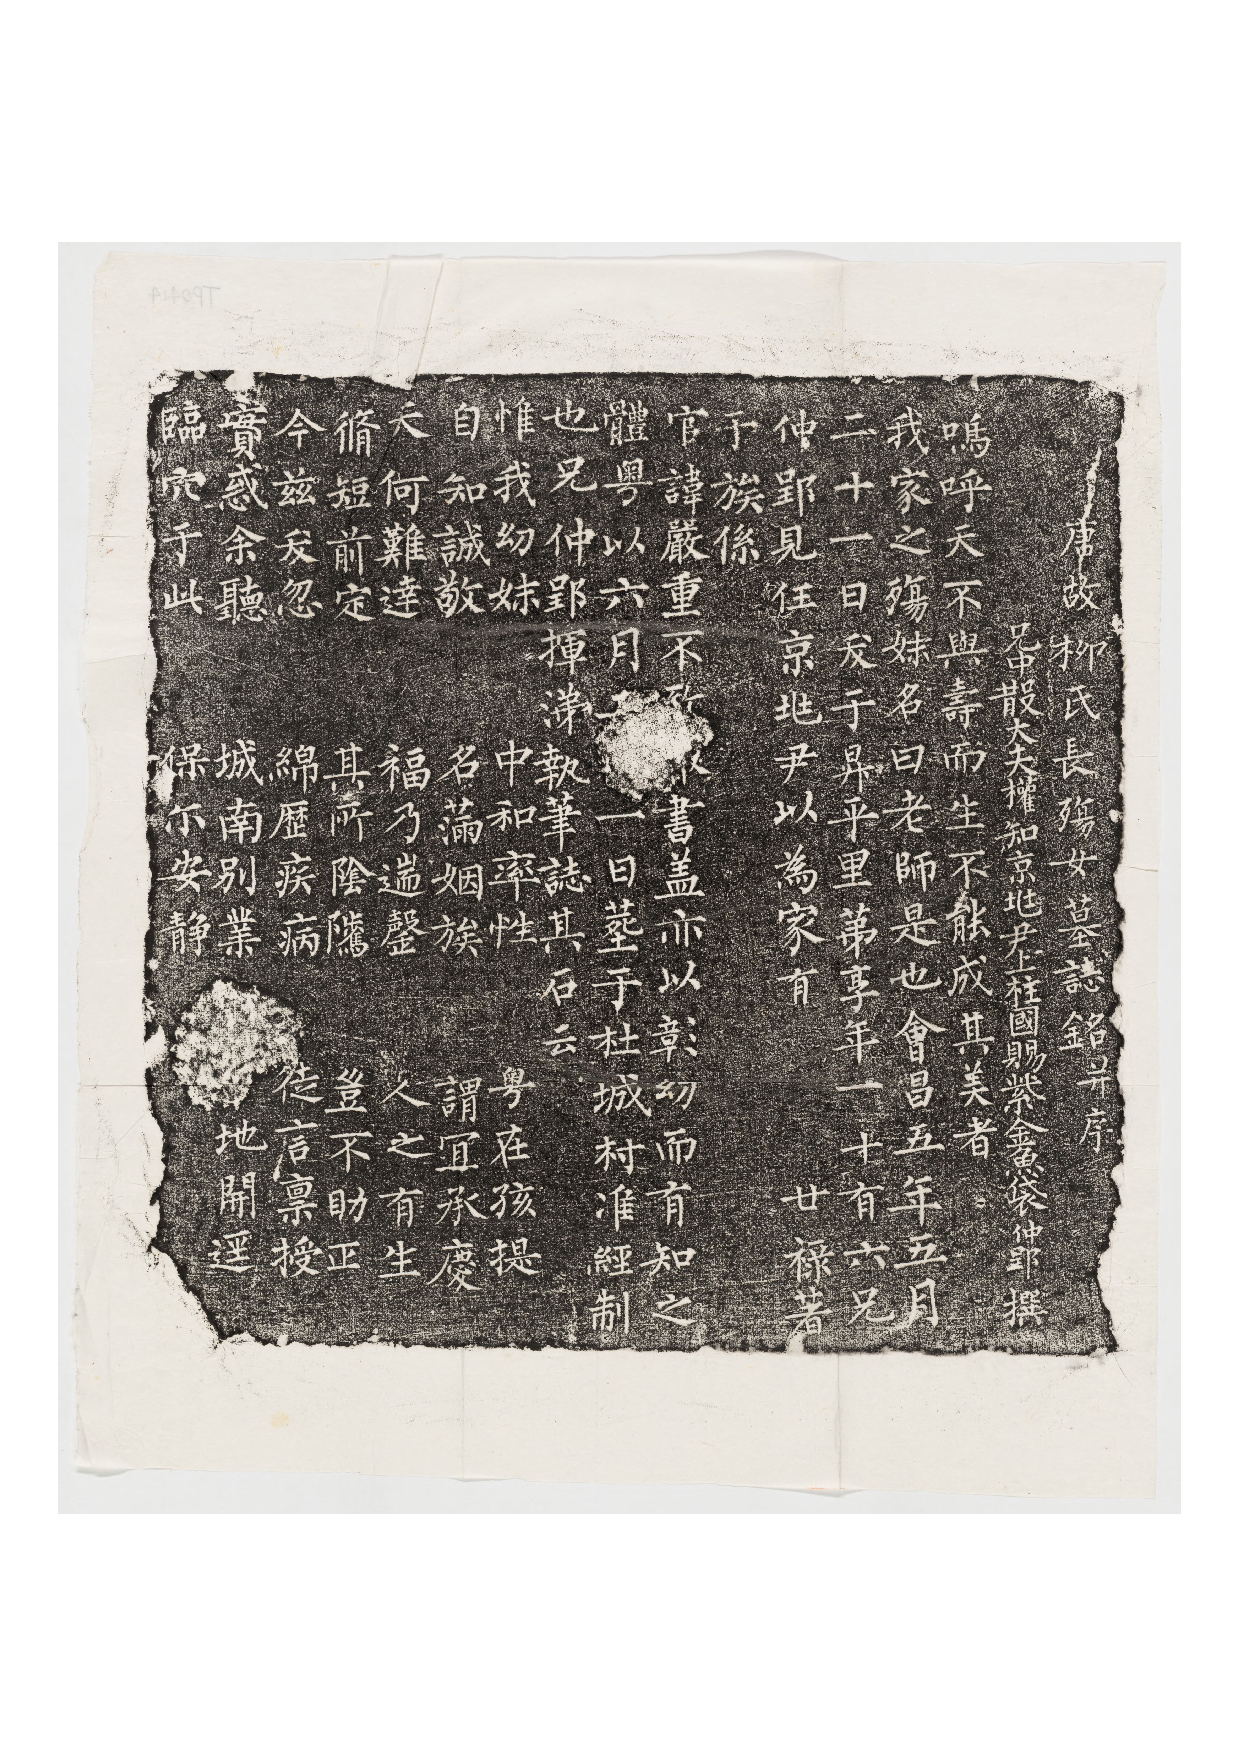 唐故柳氏長殤女墓誌銘并序
兄中散大夫權知京地尹上柱國賜紫金魚袋仲郢撰
嗚呼天不與壽而生不能成其美者
我家之殤妹名曰老師是也會昌五年五月
二十一日歿于昇平里第享年一十有六兄
仲郢見任京地尹以為家有 廿祿著
于族係
官諱嚴重不書盖亦以彰幼而有知之
體粵以六月一日塟于杜城村准經制
也兄仲郢揮涕執筆誌其石云
惟我幼妹 中和率性 粵在孩提
自知誠敬 名藹姻族 謂宜承慶
天何難達 福乃遄罄 人之有生
脩短前定 其所陰隲 豈不助正
今兹歿忽 綿歷疾病 徒言禀授
實惑余聽 城南別業 地開逕
臨穴于此 保尓安靜
TP0424